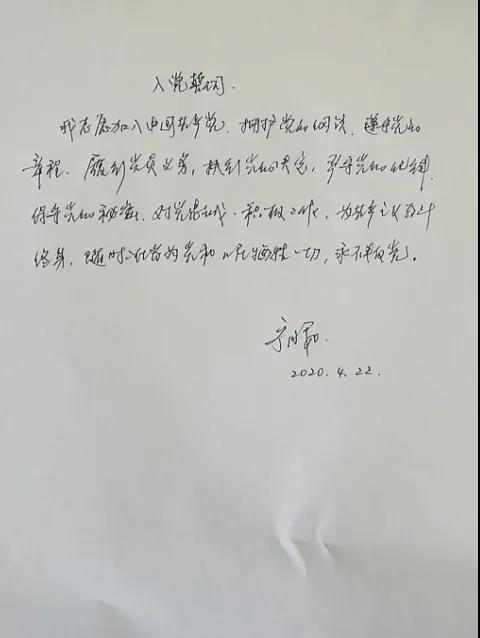 入党誓词.
我志愿加入中国共产党、拥护党的纲领、遵守党的
章程、履行党员义务,执行党的决定,严守党的纪律、
保守党的秘密、对党忠诚、积极工作、为共产主义奋斗
终身、随时准备为党和人民牺牲一切,永不叛党。
2020.4.22.